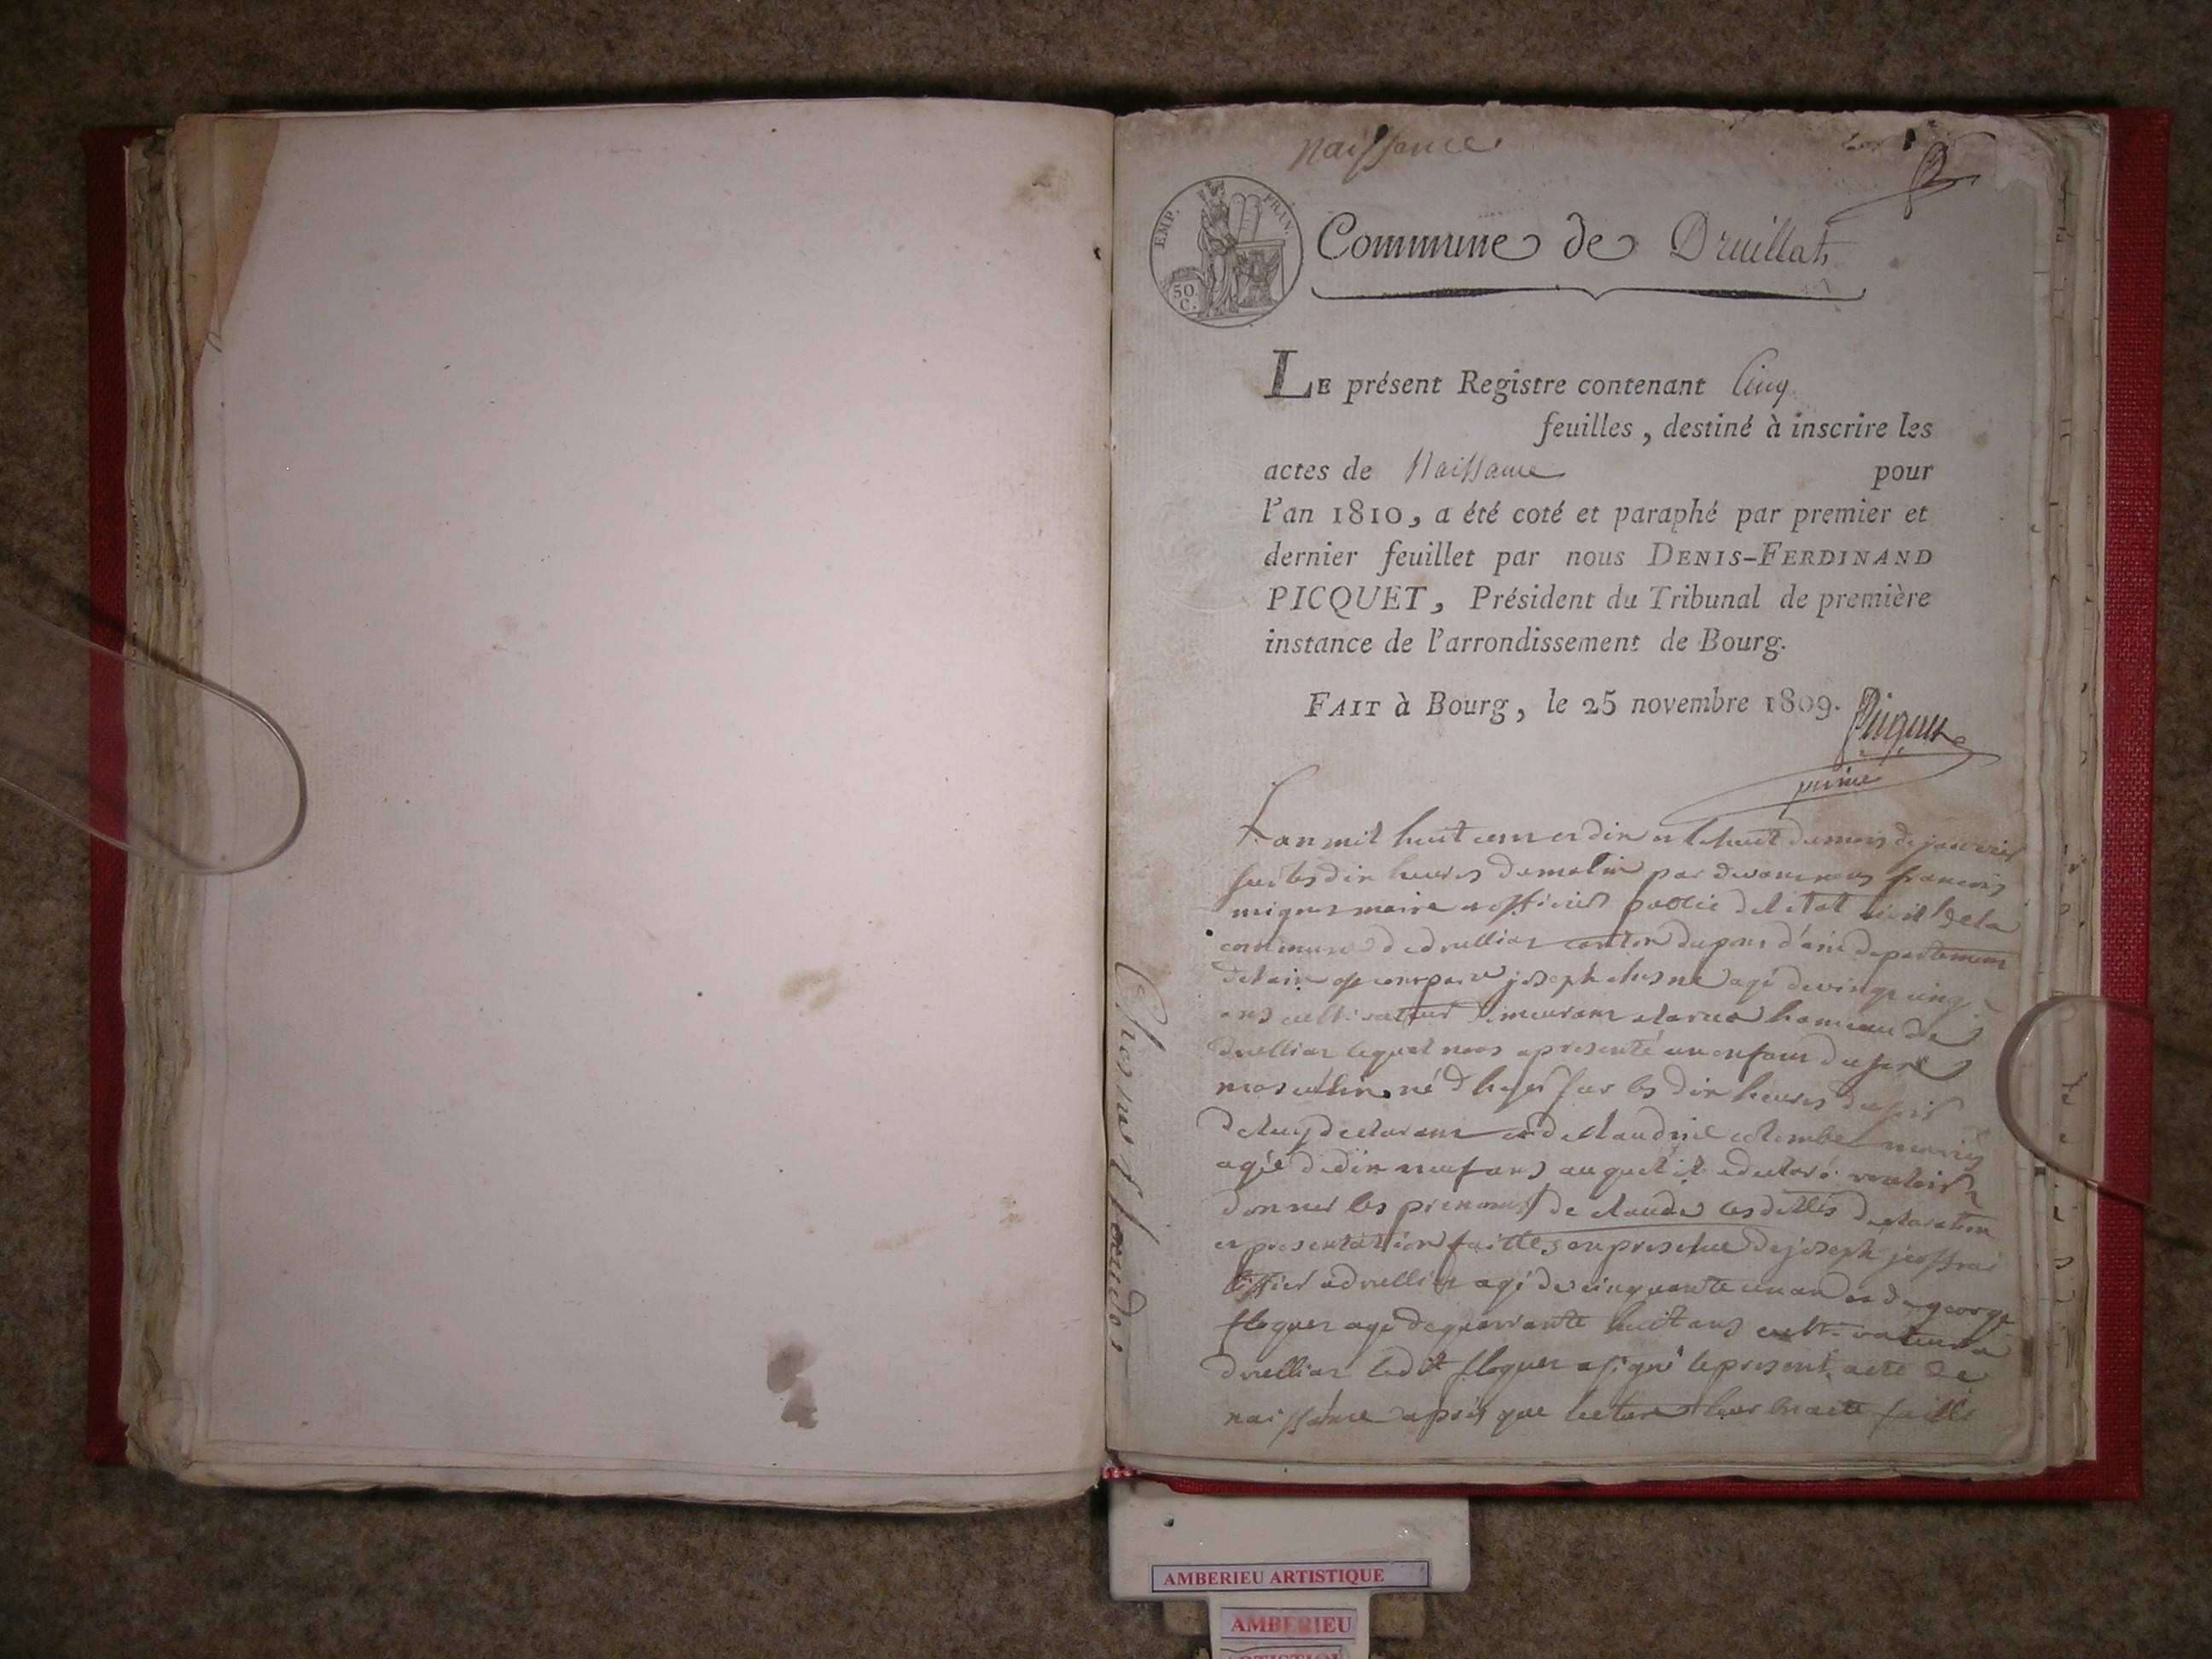 naissance
EMP. FRAN.
50 C.
Commune de Druillat
LE présent Registre contenant Cinq
feuilles, destiné à inscrire les
actes de Naissance pour
l'an 1810, a été coté et paraphé par premier et
dernier feuillet par nous DENIS-FERDINAND
PICQUET, Président du Tribunal de première
instance de l'arrondissement de Bourg.
FAIT à Bourg, le 25 novembre 1809.
Picquet
Lan mil huit cent et dix et le huit du mois de janvier
sur les dix heures du matin par devant nous francois
maire et officier public de l'état civil de la
commune de druillat canton du pont d'ain departement
de l'ain est comparu joseph chesne agé de vingt cinq
ans cultivateur demeurant hameau de
druillat lequel nous a presenté un enfant du sexe
masculin né d'hyer sur les dix heures du soir
de luy declarant et de claudine colombe
agée de dix neuf ans auquel il a declaré vouloir
donner les prenoms de claude lesdittes declaration
et presentation faittes en presence de joseph
tissier a druillat agé de cinquante un an et de george
floquet agé de quarante huit ans cultivateur a
druillat ledit floquet a signé le present acte de
naissance apres que lecture leur en a été faitte
Chesne Claude
AMBERIEU ARTISTIQUE
AMBERIEU
ARTISTIQUE